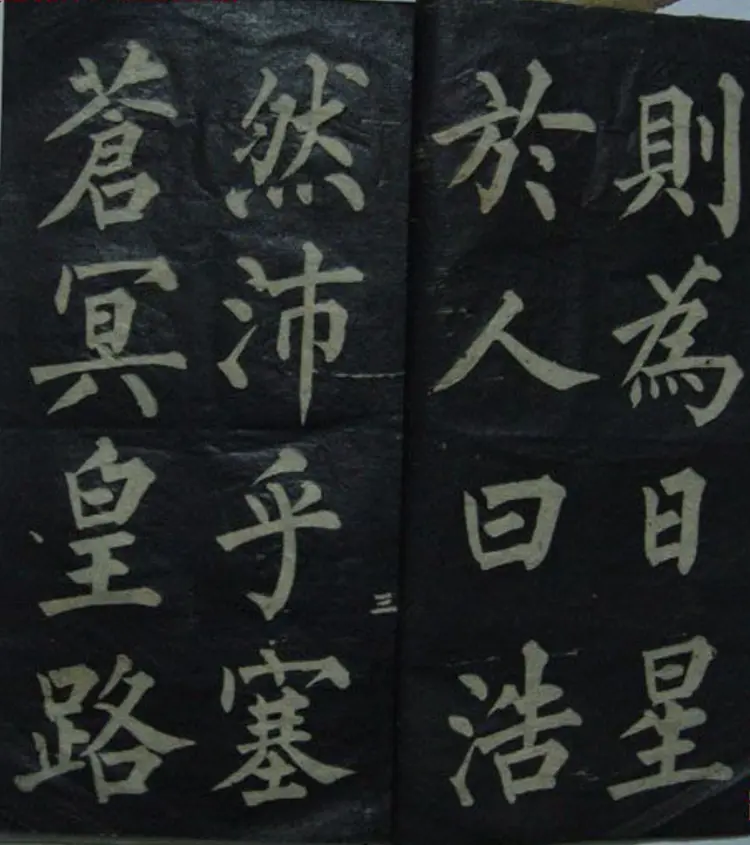 則為日星
於人曰浩
三
然沛乎塞
蒼冥皇路